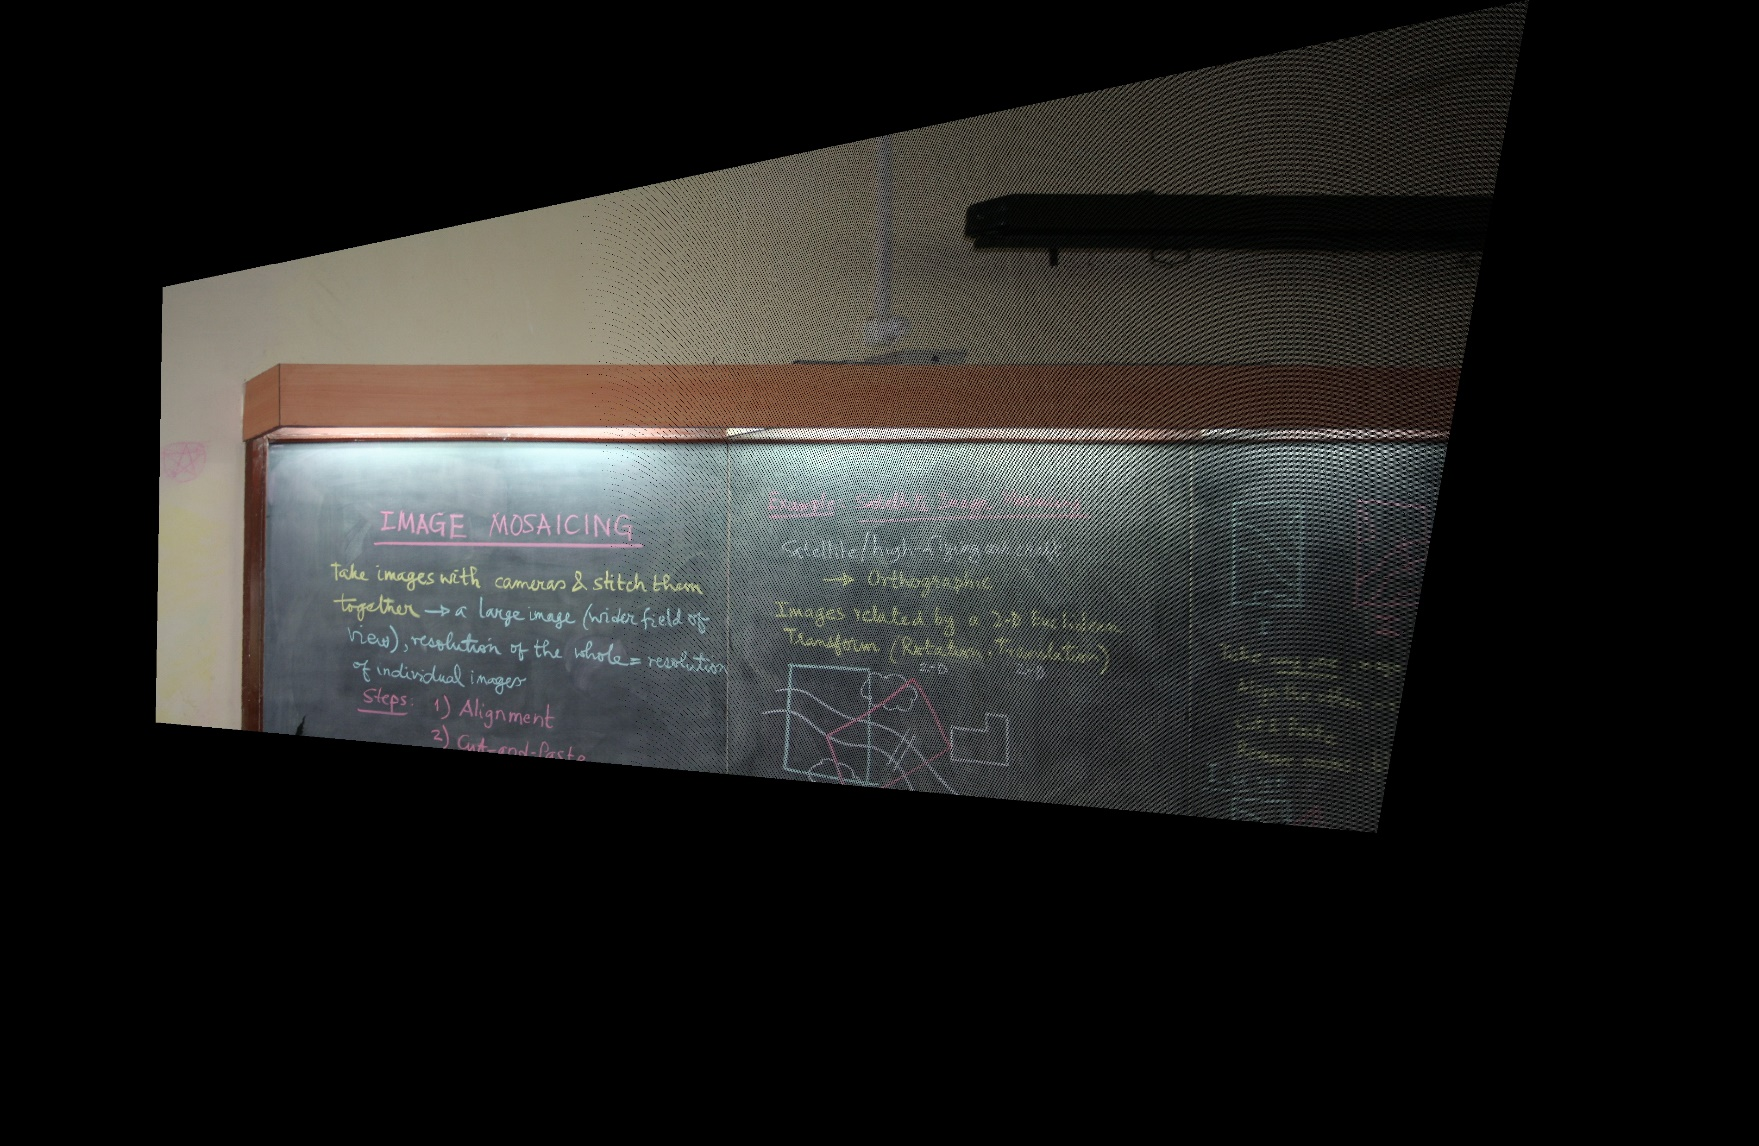 IMAGE MOSAICING
Take images with cameras & stitch them
together → a large image (wider field of
view), resolution of the whole = resolution
of individual images
Steps: 1) Alignment
2) Cut-and-Paste
Example Satellite Image Mosaicing
Satellite/high-flying aircraft
→ Orthographic
Images related by a 2-D Euclidean
Transform (Rotation, Translation)
2-D 2-D